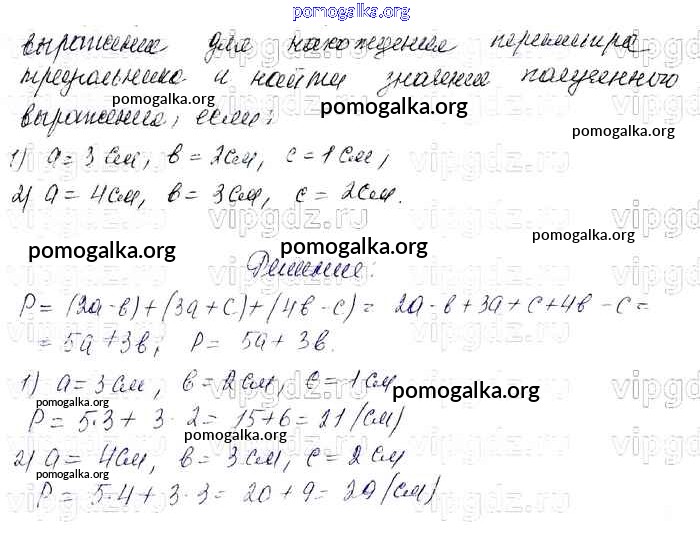 pomogalka.org
выражение для нахождения периметра
треугольника и найти значение полученного
pomogalka.org
pomogalka.org
выражения, если:
pomogalka.org
1) a = 3 см, в = 2 см, с = 1 см,
2) a = 4 см, в = 3 см, с = 2 см.
vipgdz.ru
pomogalka.org
pomogalka.org
pomogalka.org
Решение:
P = (2a - в) + (3a + c) + (4в - c) = 2a - в + 3a + c + 4в - c =
= 5a + 3в; P = 5a + 3в.
1) a = 3 см, в = 2 см, c = 1 см
pomogalka.org
pomogalka.org
P = 5·3 + 3·2 = 15 + 6 = 21 (см)
pomogalka.org
2) a = 4 см, в = 3 см, c = 2 см
pomogalka.org
P = 5·4 + 3·3 = 20 + 9 = 29 (см)
vipgdz.ru